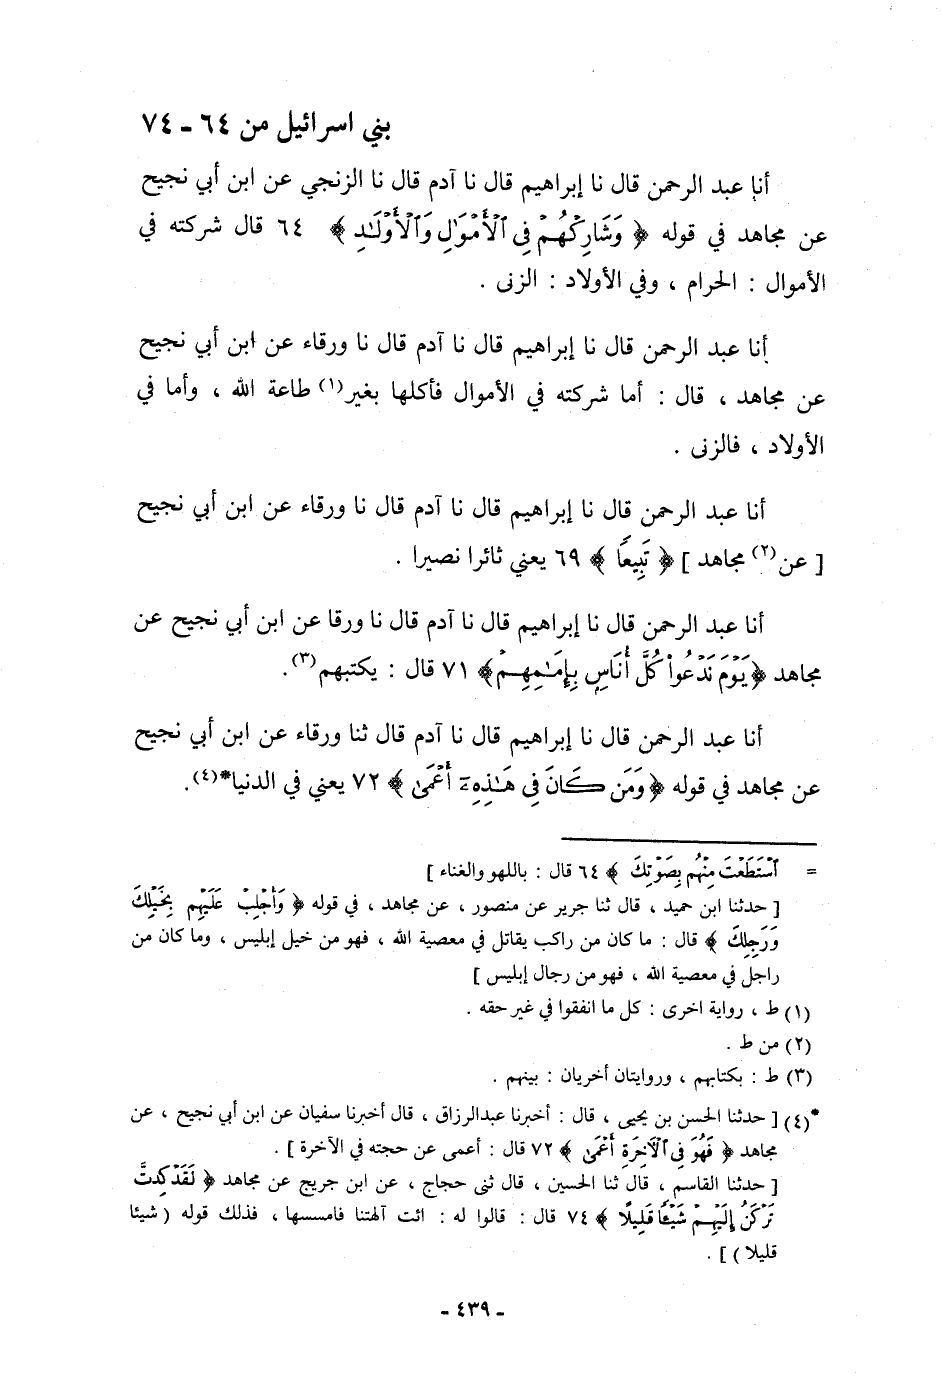 بني اسرائيل من ٦٤ - ٧٤
أنا عبد الرحمن قال نا إبراهيم قال نا آدم قال نا الزنجي عن ابن أبي نجيح
عن مجاهد في قوله ﴿ وَشَارِكْهُمْ فِى ٱلْأَمْوَٰلِ وَٱلْأَوْلَٰدِ ﴾ ٦٤ قال شركته في
الأموال : الحرام ، وفي الأولاد : الزنى .
أنا عبد الرحمن قال نا إبراهيم قال نا آدم قال نا ورقاء عن ابن أبي نجيح
عن مجاهد ، قال : أما شركته في الأموال فأكلها بغير(١) طاعة الله ، وأما في
الأولاد ، فالزنى .
أنا عبد الرحمن قال نا إبراهيم قال نا آدم قال نا ورقاء عن ابن أبي نجيح
[ عن(٢) مجاهد ] ﴿ تَبِيعًا ﴾ ٦٩ يعني ثائرا نصيرا .
أنا عبد الرحمن قال نا إبراهيم قال نا آدم قال نا ورقا عن ابن أبي نجيح عن
مجاهد ﴿يَوْمَ نَدْعُوا۟ كُلَّ أُنَاسٍۭ بِإِمَٰمِهِمْ﴾ ٧١ قال : يكتبهم(٣).
أنا عبد الرحمن قال نا إبراهيم قال نا آدم قال ثنا ورقاء عن ابن أبي نجيح
عن مجاهد في قوله ﴿وَمَن كَانَ فِى هَٰذِهِۦٓ أَعْمَىٰ ﴾ ٧٢ يعني في الدنيا*(٤).
= ٱسْتَطَعْتَ مِنْهُم بِصَوْتِكَ ﴾ ٦٤ قال : باللهو والغناء ]
[ حدثنا ابن حميد ، قال ثنا جرير عن منصور ، عن مجاهد ، في قوله ﴿ وَأَجْلِبْ عَلَيْهِم بِخَيْلِكَ
وَرَجِلِكَ ﴾ قال : ما كان من راكب يقاتل في معصية الله ، فهو من خيل إبليس ، وما كان من
راجل في معصية الله ، فهو من رجال إبليس ]
(١) ط ، رواية اخرى : كل ما انفقوا في غير حقه .
(٢) من ط .
(٣) ط : بكتابهم ، وروايتان أخريان : بينهم .
*(٤) [ حدثنا الحسن بن يحيى ، قال : أخبرنا عبدالرزاق ، قال أخبرنا سفيان عن ابن أبي نجيح ، عن
مجاهد ﴿ فَهُوَ فِى ٱلْءَاخِرَةِ أَعْمَىٰ ﴾ ٧٢ قال : أعمى عن حجته في الآخرة ] .
[ حدثنا القاسم ، قال ثنا الحسين ، قال ثنى حجاج ، عن ابن جريج عن مجاهد ﴿ لَقَدْ كِدتَّ
تَرْكَنُ إِلَيْهِمْ شَيْـًٔا قَلِيلًا ﴾ ٧٤ قال : قالوا له : ائت آلهتنا فامسسها ، فذلك قوله ( شيئا
قليلا ) ] .
- ٤٣٩ -